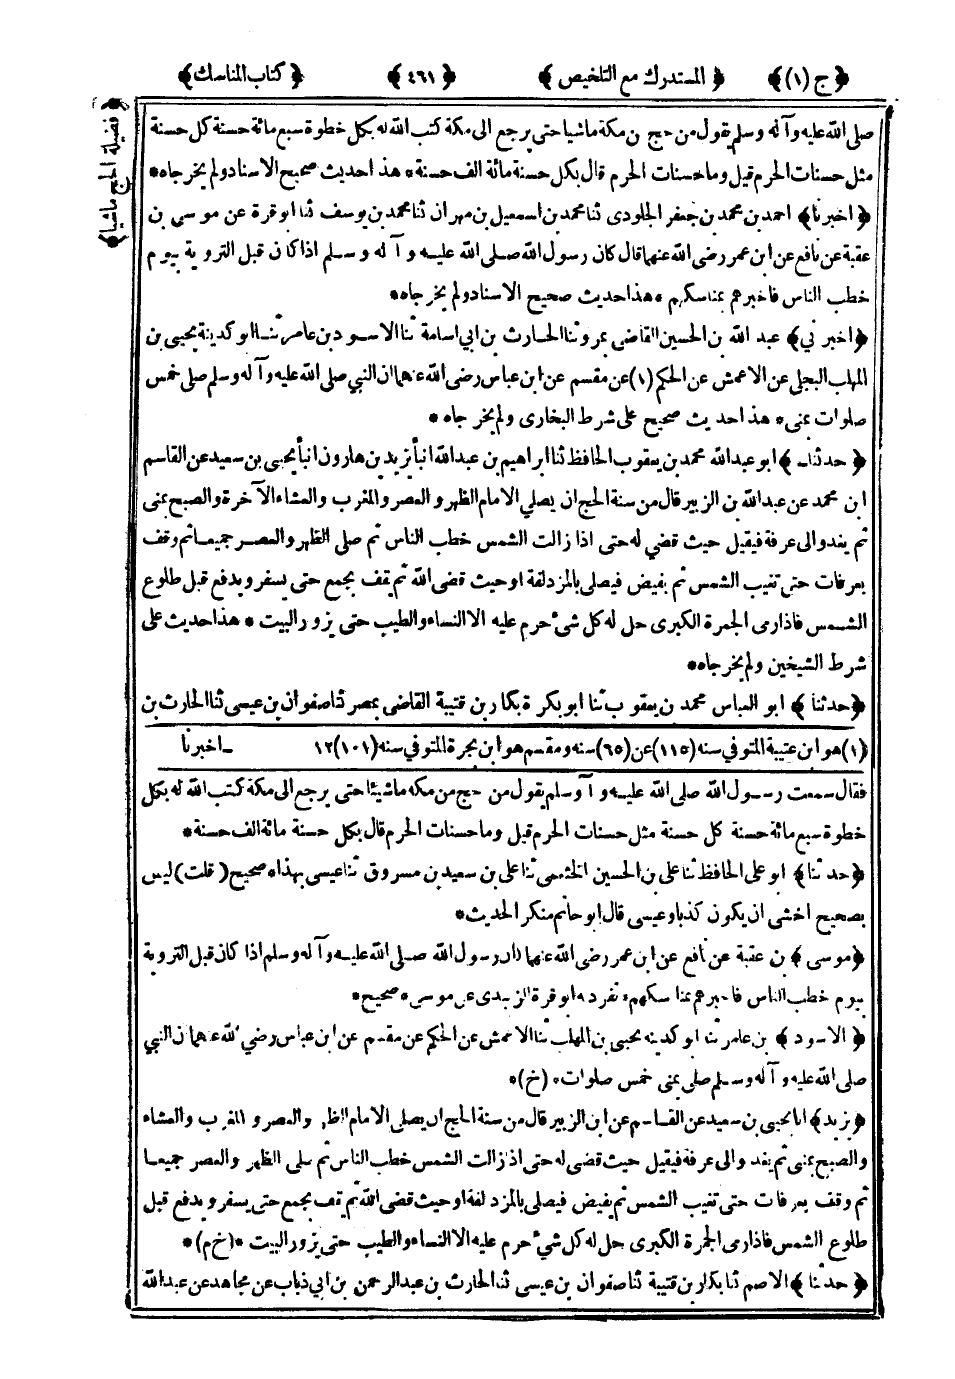 ﴿ ج (١) ﴾ ﴿ المستدرك مع التلخيص ﴾ ﴿ ٤٦١ ﴾ ﴿ كتاب المناسك ﴾
﴿ فضيلة الحج ماشيا ﴾
صلى الله عليه وآله وسلم يقول من حج من مكة ماشيا حتى يرجع الى مكة كتب الله له بكل خطوة سبع مائة حسنة كل حسنة
مثل حسنات الحرم قيل وما حسنات الحرم قال بكل حسنة مائة الف حسنة * هذا حديث صحيح الاسناد ولم يخرجاه *
﴿ اخبرنا ﴾ احمد بن محمد بن جعفر الجلودى ثنا محمد بن اسمعيل بن مهران ثنا محمد بن يوسف ثنا ابو قرة عن موسى بن
عقبة عن نافع عن ابن عمر رضى الله عنهما قال كان رسول الله صلى الله عليه وآله وسلم اذا كان قبل التروية بيوم
خطب الناس فاخبرهم بمناسكهم * هذا حديث صحيح الاسناد ولم يخرجاه *
﴿ اخبرني ﴾ عبد الله بن الحسين القاضى بمرو ثنا الحارث بن ابي اسامة ثنا الاسود بن عامر ثنا ابو كدينة يحيى بن
المهلب البجلي عن الاعمش عن الحكم (١) عن مقسم عن ابن عباس رضى الله عنهما ان النبي صلى الله عليه وآله وسلم صلى خمس
صلوات بمنى * هذا حديث صحيح على شرط البخارى ولم يخرجاه *
﴿ حدثنا ﴾ ابو عبدالله محمد بن يعقوب الحافظ ثنا ابراهيم بن عبدالله انبأ يزيد بن هارون انبأ يحيى بن سعيد عن القاسم
ابن محمد عن عبدالله بن الزبير قال من سنة الحج ان يصلي الامام الظهر والعصر والمغرب والعشاء الآخرة والصبح بمنى
ثم يغدو الى عرفة فيقيل حيث قضي له حتى اذا زالت الشمس خطب الناس ثم صلى الظهر والعصر جميعا ثم وقف
بعرفات حتى تغيب الشمس ثم يفيض فيصلى بالمزدلفة او حيث قضى الله ثم يقف بجمع حتى يسفر ويدفع قبل طلوع
الشمس فاذا رمى الجمرة الكبرى حل له كل شئ حرم عليه الا النساء والطيب حتى يزور البيت * هذا حديث على
شرط الشيخين ولم يخرجاه *
﴿ حدثنا ﴾ ابو العباس محمد بن يعقوب ثنا ابو بكرة بكار بن قتيبة القاضى بمصر ثنا صفوان بن عيسى ثنا الحارث بن
(١) هو ابن عتيبة المتوفي سنه (١١٥) عن (٦٥) سنه ومقسم هو ابن بجرة المتوفي سنه (١٠١) ١٢ ـ اخبرنا
فقال سمعت رسول الله صلى الله عليه وآله وسلم يقول من حج من مكه ماشيا حتى يرجع الى مكة كتب الله له بكل
خطوة سبع مائة حسنة كل حسنة مثل حسنات الحرم قيل وما حسنات الحرم قال بكل حسنة مائة الف حسنة *
﴿ حدثنا ﴾ ابو على الحافظ ثنا على بن الحسين الخثعمى ثنا على بن سعيد بن مسروق ثنا عيسى بهذا * صحيح (قلت) ليس
بصحيح اخشى ان يكون كذبا وعيسى قال ابو حاتم منكر الحديث *
﴿ موسى ﴾ بن عقبة عن نافع عن ابن عمر رضى الله عنهما ان رسول الله صلى الله عليه وآله وسلم اذا كان قبل التروية
بيوم خطب الناس فاخبرهم بمناسكهم * تفرد به ابو قرة الزبيدى عن موسى * صحيح *
﴿ الاسود ﴾ بن عامر ثنا ابو كدينه يحيى بن المهلب ثنا الاعمش عن الحكم عن مقسم عن ابن عباس رضي الله عنهما ان النبي
صلى الله عليه وآله وسلم صلى بمنى خمس صلوات * (خ) *
﴿ يزيد ﴾ انا يحيى بن سعيد عن القاسم عن ابن الزبير قال من سنة الحج ان يصلى الامام الظهر والعصر والمغرب والعشاء
والصبح بمنى ثم يغدو الى عرفة فيقيل حيث قضى له حتى اذ ازالت الشمس خطب الناس ثم صلى الظهر والعصر جميعا
ثم وقف بعرفات حتى تغيب الشمس ثم يفيض فيصلى بالمزدلفة او حيث قضى الله ثم يقف بجمع حتى يسفر ويدفع قبل
طلوع الشمس فاذا رمى الجمرة الكبرى حل له كل شئ حرم عليه الا النساء والطيب حتى يزور البيت * (خ م) *
﴿ حدثنا ﴾ الاصم ثنا بكار بن قتيبة ثنا صفوان بن عيسى ثنا الحارث بن عبد الرحمن بن ابي ذباب عن مجاهد عن عبدالله